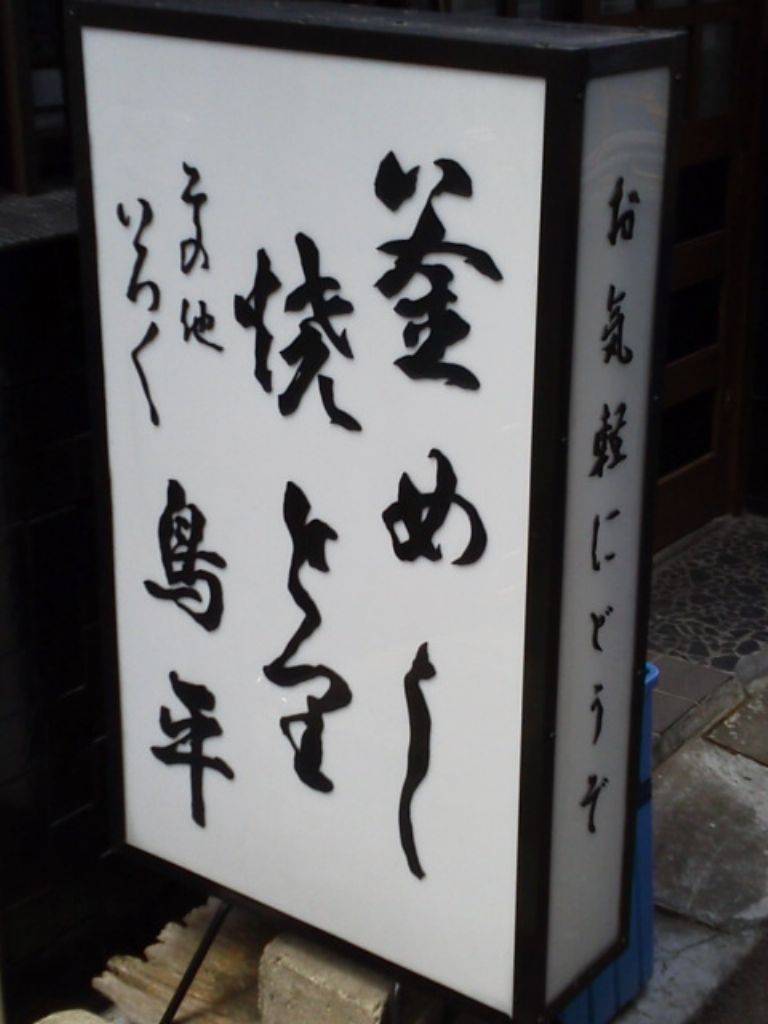 釜めし
焼とり
その他
いろく
鳥平
お気軽にどうぞ